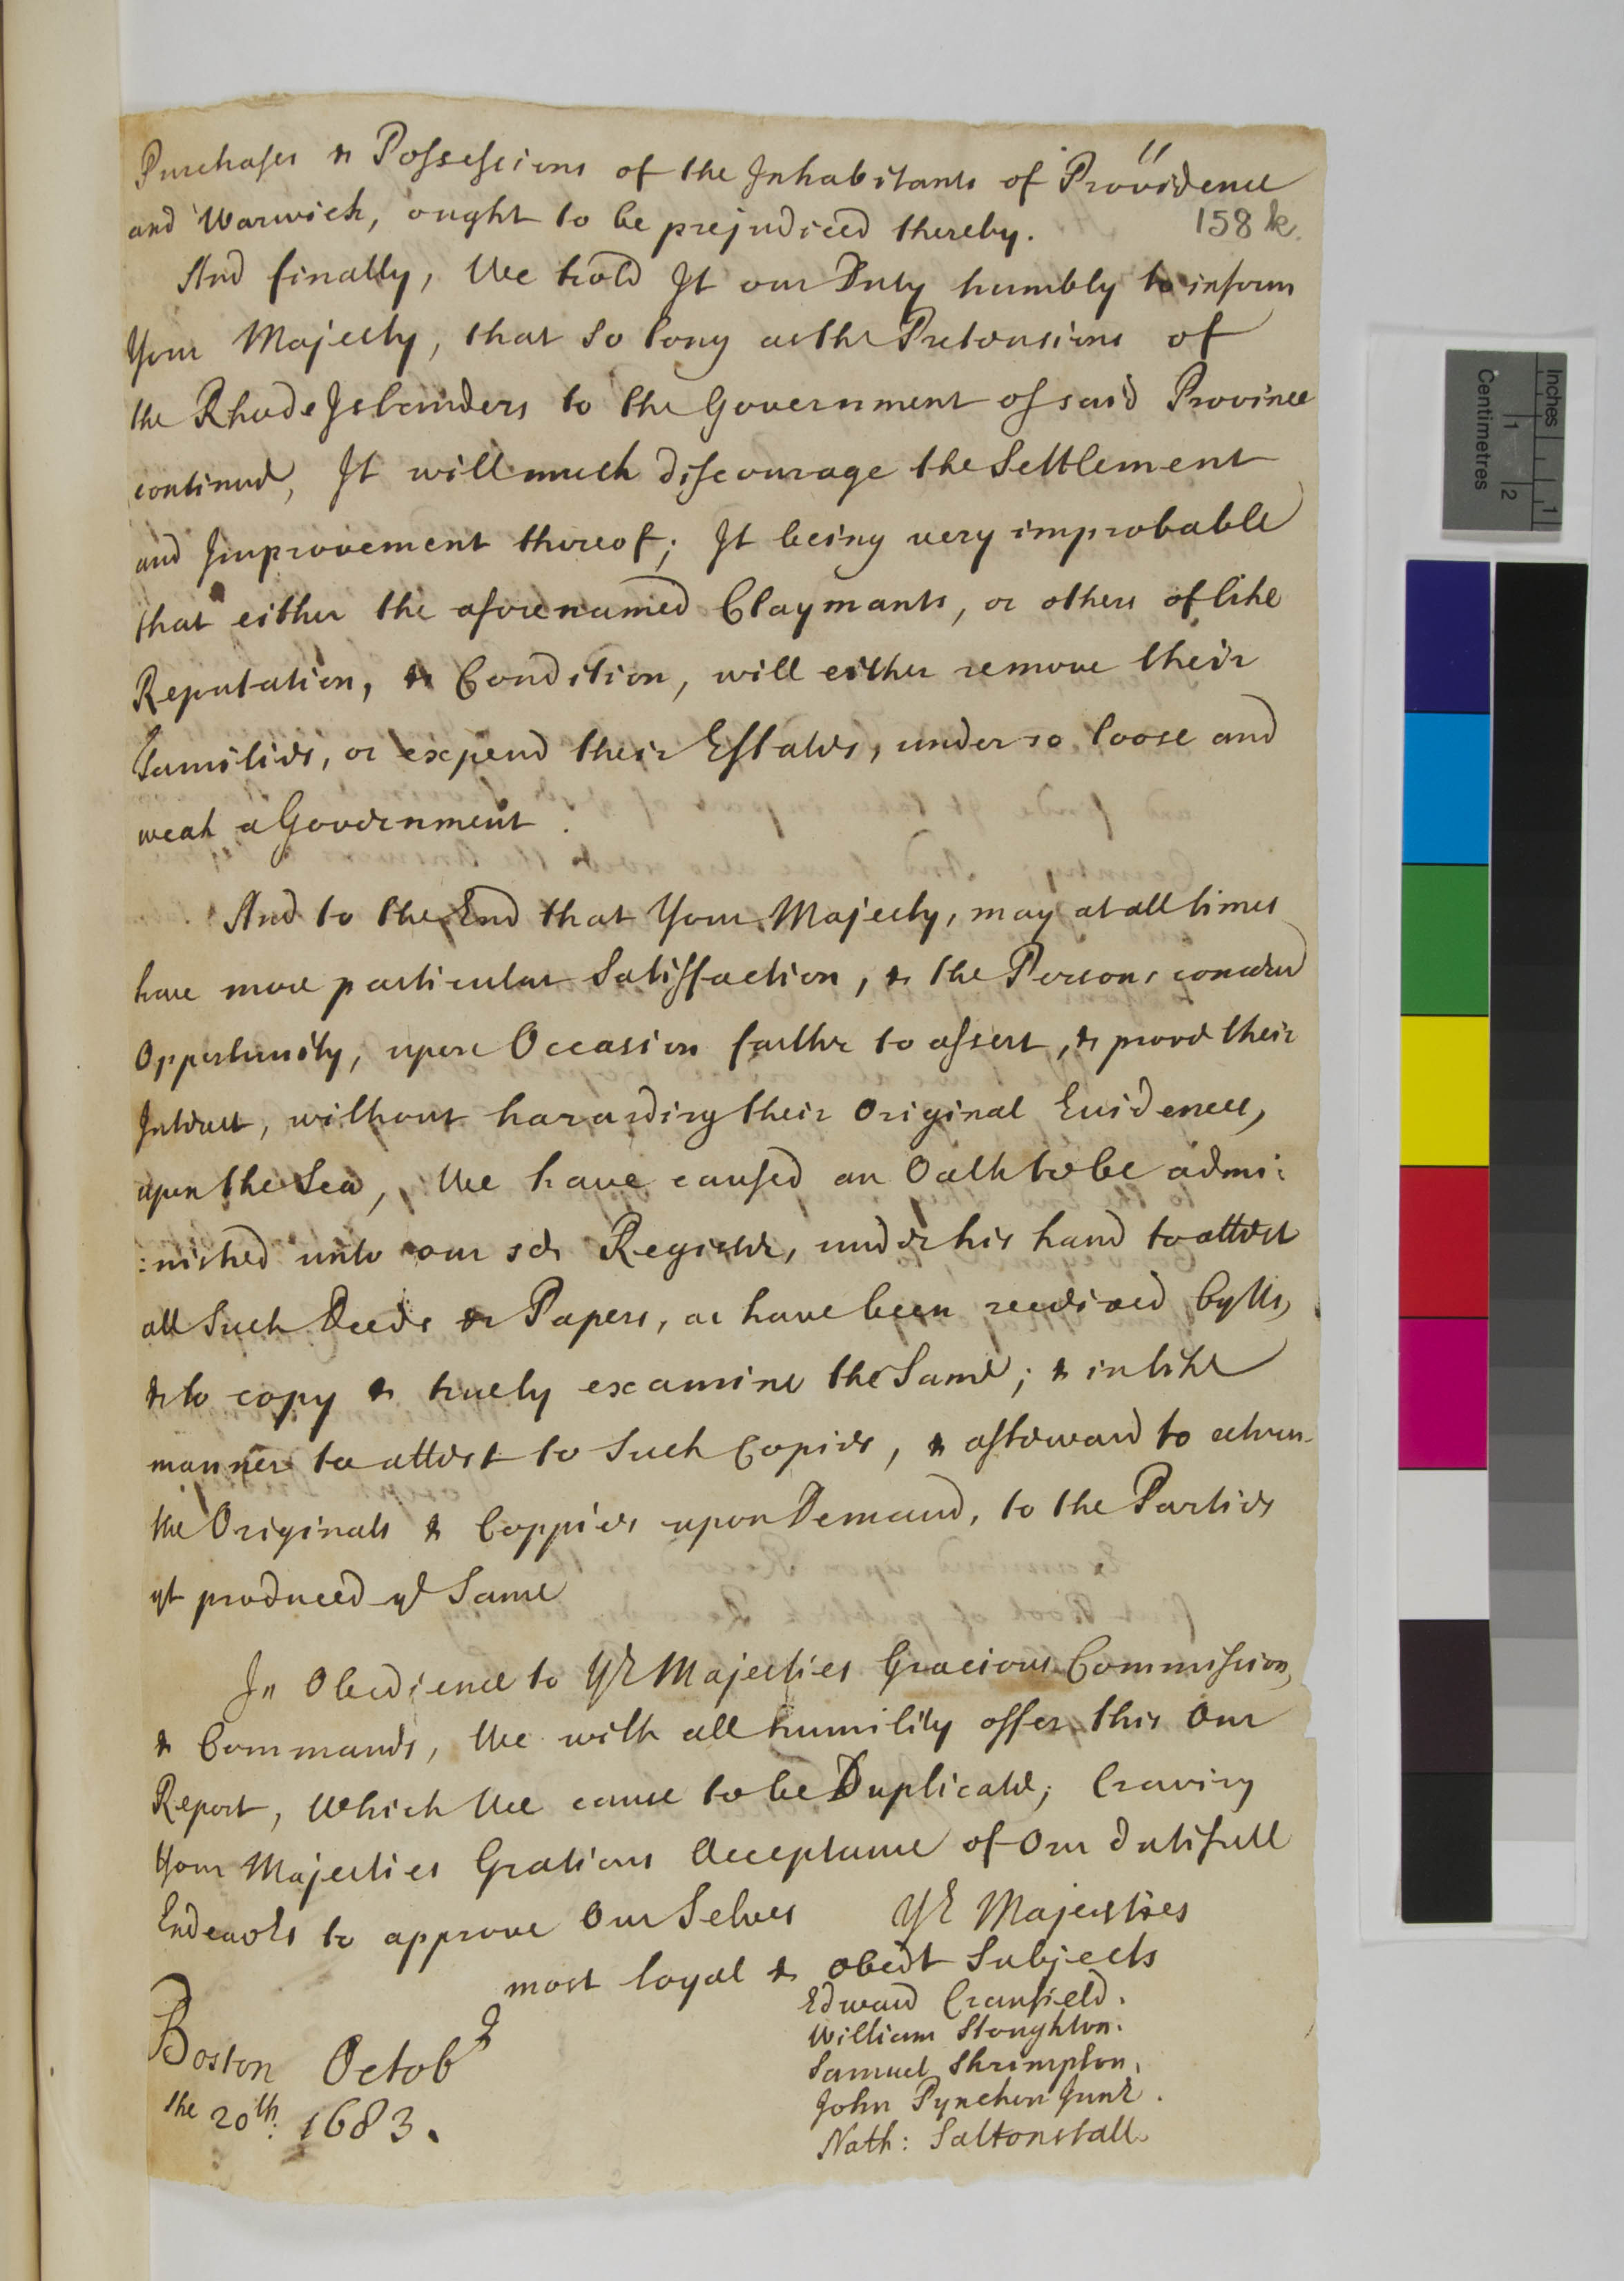 11
Purchases & Possessions of the Inhabitants of Providence
and Warwick, ought to be prejudiced thereby.
158 k.
And finally, We hold It our Duty humbly to inform
Your Majesty, that so long as the Pretensions of
the Rhode Islanders to the Government of said Province
continue, It will much discourage the Settlement
and Improvement thereof; It being very improbable
that either the aforenamed Claymants, or others of like
Reputation, & Condition, will either remove their
Families, or expend their Estates, under so loose and
weak a Government.
And to the End that Your Majesty, may at all times
have more particular Satisfaction, & the Persons concerned
Opportunity, upon Occasion farther to assert, & prove their
Interest, without hazarding their Original Evidences,
upon the Sea, We have caused an Oath to be admi:
:nistred unto our sd Register, under his hand to attest
all Such Deeds or Papers, as have been received by Us,
& to copy & truely examine the Same; & in like
manner to attest to Such Copies, & afterward to return
the Originals & Coppies upon Demand, to the Parties
yt produced ye Same
In Obedience to Yr Majesties Gracious Commission,
& Commands, We with all humility offer this Our
Report, Which We cause to be Duplicate; Craving
Your Majesties Gratious Acceptance of Our dutifull
Endeavors to approve Our Selves Yr Majesties
most loyal & obedt Subjects
Edward Cranfield.
William Stoughton.
Samuel Shrimpton.
John Pynchon Junr.
Nath: Saltonstall.
Boston Octobr
the 20th. 1683.
Inches
1
Centimetres
1
2